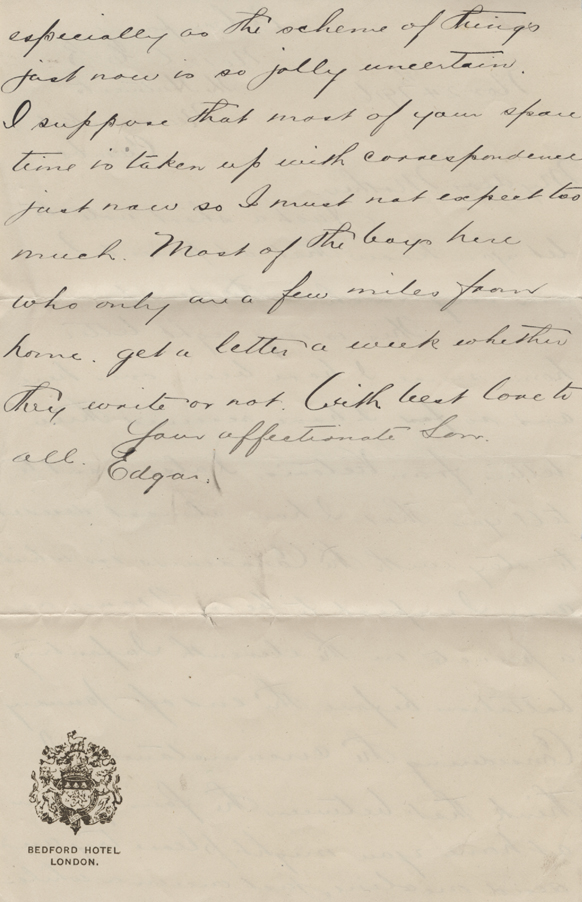 especially as the scheme of things
just now is so jolly uncertain.
I suppose that most of your spare
time is taken up with correspondence
just now so I must not expect too
much. Most of the boys here
who only are a few miles from
home. get a letter a week whether
they write or not. With best love to
all. Your affectionate Son.
Edgar.
BEDFORD HOTEL
LONDON.